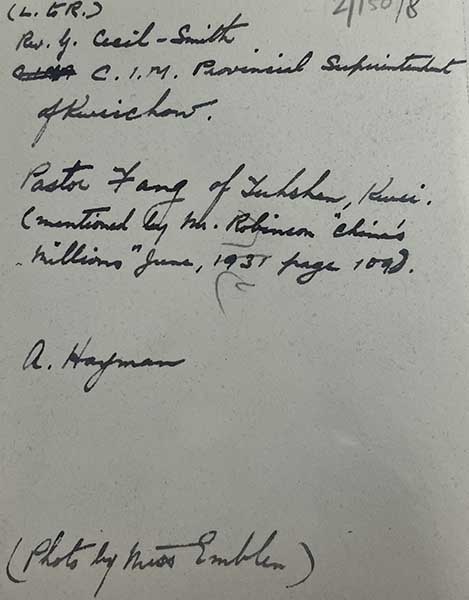 (L. to R.)
2/150/8
Rev. G. Cecil-Smith
C.I.M. Provincial Superintendent
of Kweichow.
Pastor Fang of Tuhshan, Kwei.
(mentioned by Mr. Robinson "China's
Millions" June, 1931 page 109).
(?
A. Hayman
(Photo by Miss Emblen)